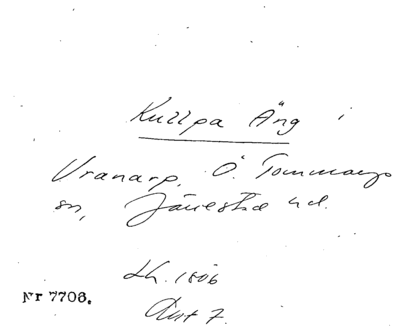 Kullpa Äng i
Vranarp, Ö. Tommarps
sn, Järrestad hd.
Lh. 1806
Akt 7.
Nr 7706.